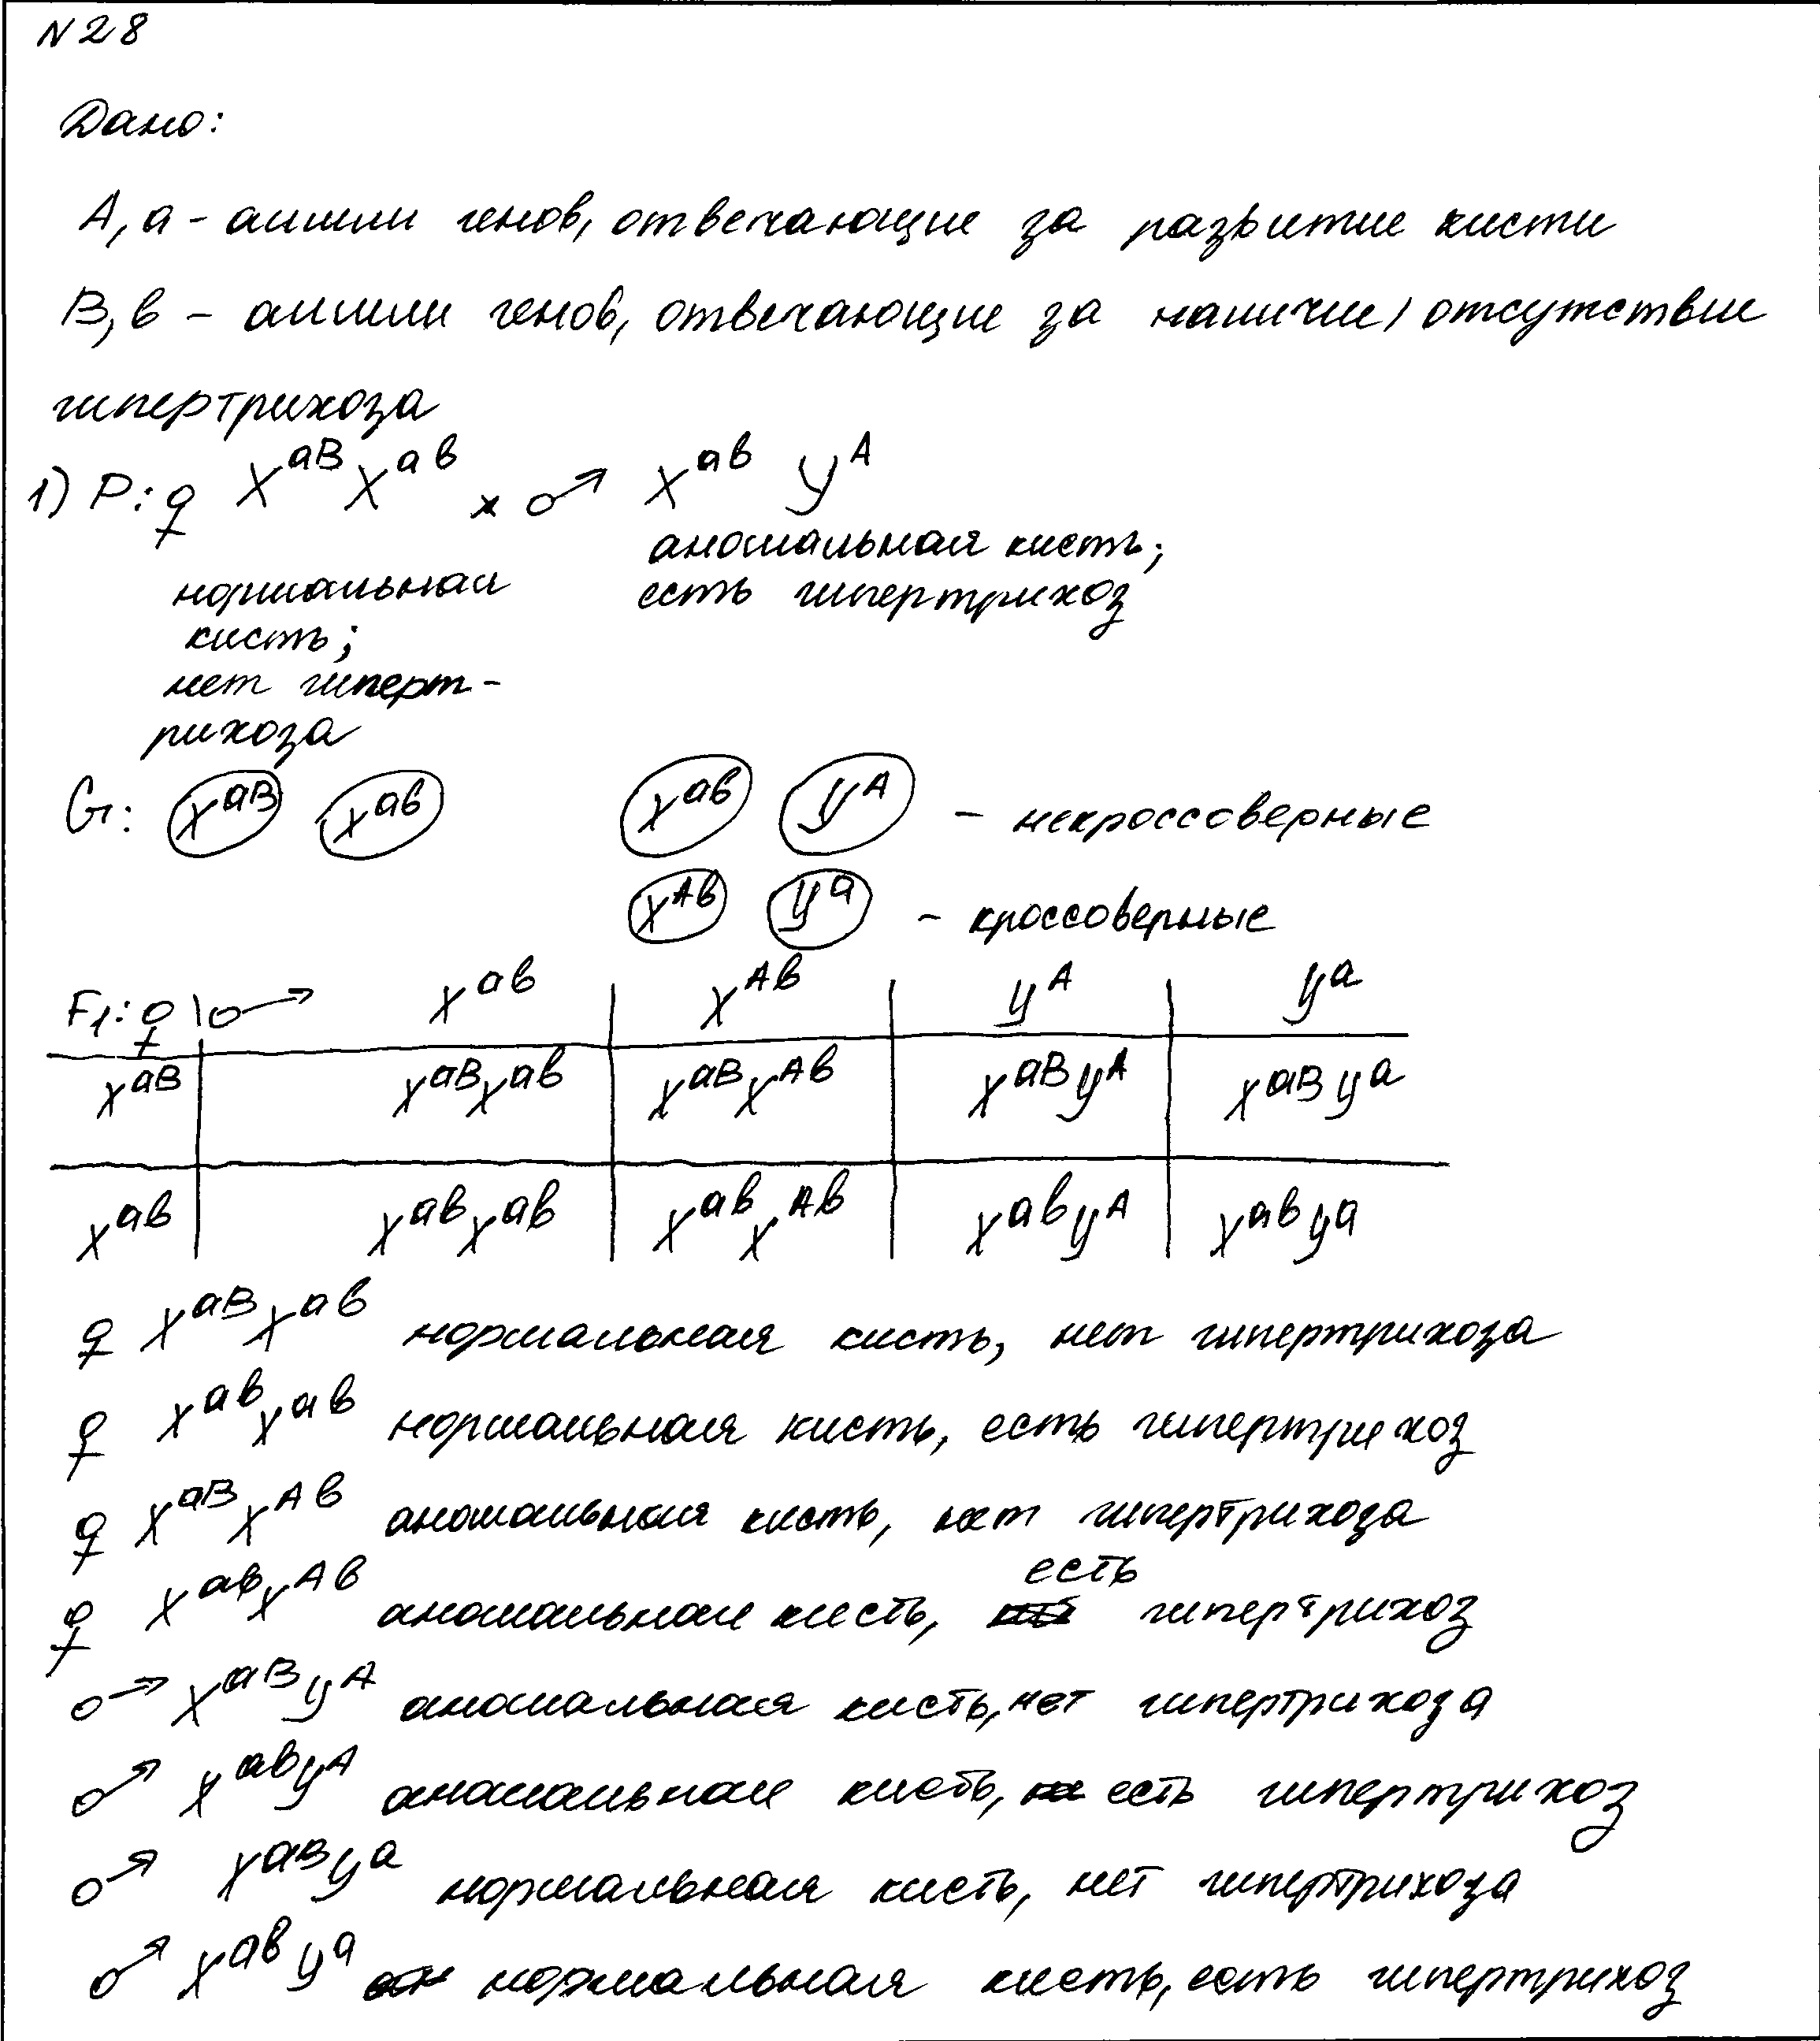 N28
Дано:
А, а - аллели генов, отвечающие за развитие кисти
В, в - аллели генов, отвечающие за наличие/отсутствие
гипертрихоза
1) Р: ♀ X^aB X^aв × ♂ X^aв У^A
аномальная кисть;
нормальная есть гипертрихоз
кисть;
нет гиперт-
рихоза
G: X^aB X^aв X^aв У^A - некроссоверные
X^Aв У^a - кроссоверные
F1: ♀ \ ♂ X^aв X^Aв У^A У^a
X^aB X^aBX^aв X^aBX^Aв X^aBУ^A X^aBУ^a
X^aв X^aвX^aв X^aвX^Aв X^aвУ^A X^aвУ^a
♀ X^aBX^aв нормальная кисть, нет гипертрихоза
♀ X^aвX^aв нормальная кисть, есть гипертрихоз
♀ X^aBX^Aв аномальная кисть, нет гипертрихоза
♀ X^aвX^Aв аномальная кисть, есть гипертрихоз
♂ X^aBУ^A аномальная кисть, нет гипертрихоза
♂ X^aвУ^A аномальная кисть, есть гипертрихоз
♂ X^aBУ^a нормальная кисть, нет гипертрихоза
♂ X^aвУ^a нормальная кисть, есть гипертрихоз